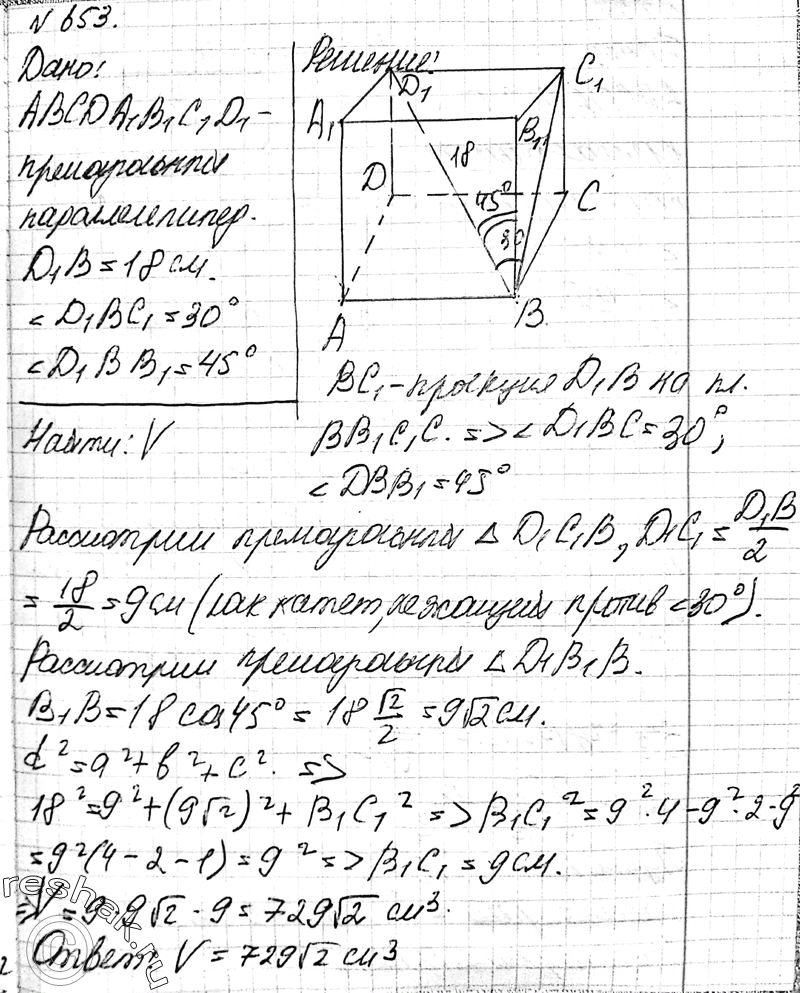 № 653.
Дано:
ABCDA₁B₁C₁D₁ –
прямоугольный
параллелепипед.
D₁B = 18 см.
< D₁BC₁ = 30°
< D₁BB₁ = 45°
Найти: V
Решение:
D₁
C₁
A₁
B₁
18
D
45°
C
30
A
B
BC₁ – проекция D₁B на пл.
BB₁C₁C. => < D₁BC = 30°,
< DBB₁ = 45°
Рассмотрим прямоугольный Δ D₁C₁B, D₁C₁ = D₁B/2
= 18/2 = 9 см (как катет, лежащий против < 30°).
Рассмотрим прямоугольный Δ D₁B₁B.
B₁B = 18 cos 45° = 18 √2/2 = 9√2 см.
d² = a² + b² + c². =>
18² = 9² + (9√2)² + B₁C₁² => B₁C₁² = 9² · 4 – 9² · 2 – 9²
= 9² (4 – 2 – 1) = 9² => B₁C₁ = 9 см.
=> V = 9 · 9√2 · 9 = 729√2 см³.
Ответ: V = 729√2 см³
reshak.ru